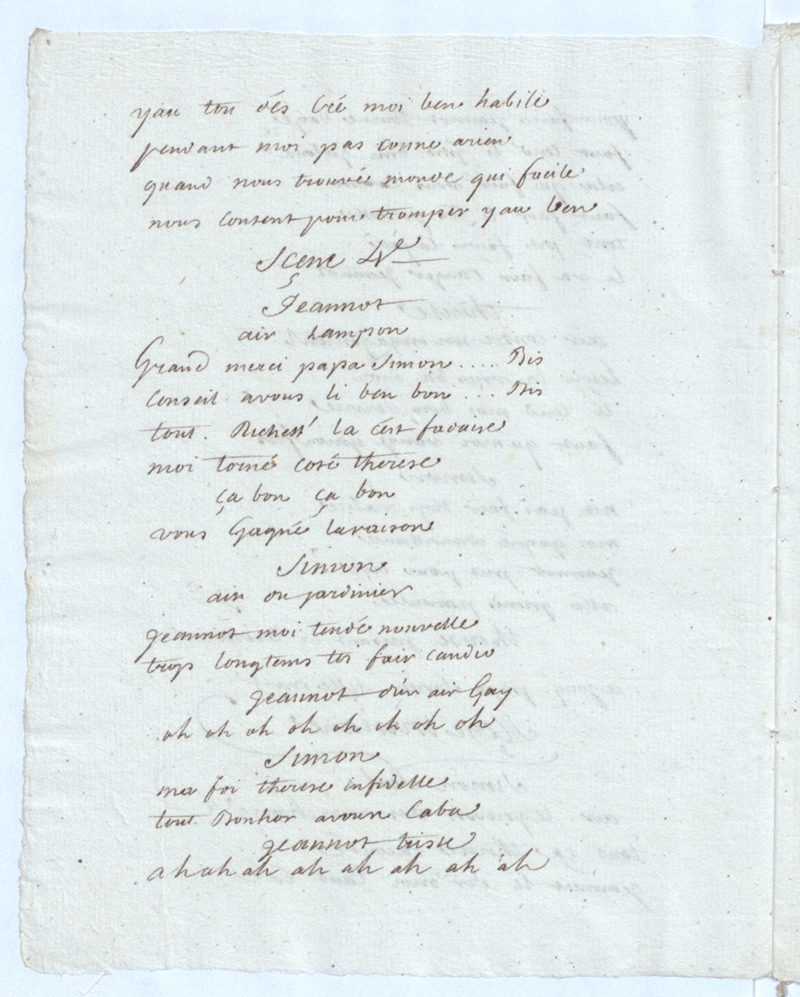 yau tou dés cré moi ben habile
pendant moi pas conne arien
quand nous trouvé monde qui facile
nous content pour tromper yau ben
Scene 4e
Jeannot
air Lampon
Grand merci papa Simon .... Bis
Conseil avous li ben bon ... Bis
tout. Richess' la cést fadaise
moi torné coté therese
ça bon ça bon
vous Gagné laraison
Simon
air du jardinier
Jeannot moi tendé nouvelle
trop longtems toi fair candio
Jeannot d'un air Gay
oh oh oh oh oh oh oh oh
Simon
ma foi therese infidelle
tout Bonhor avoun Caba
Jeannot triste
ah ah ah ah ah ah ah ah